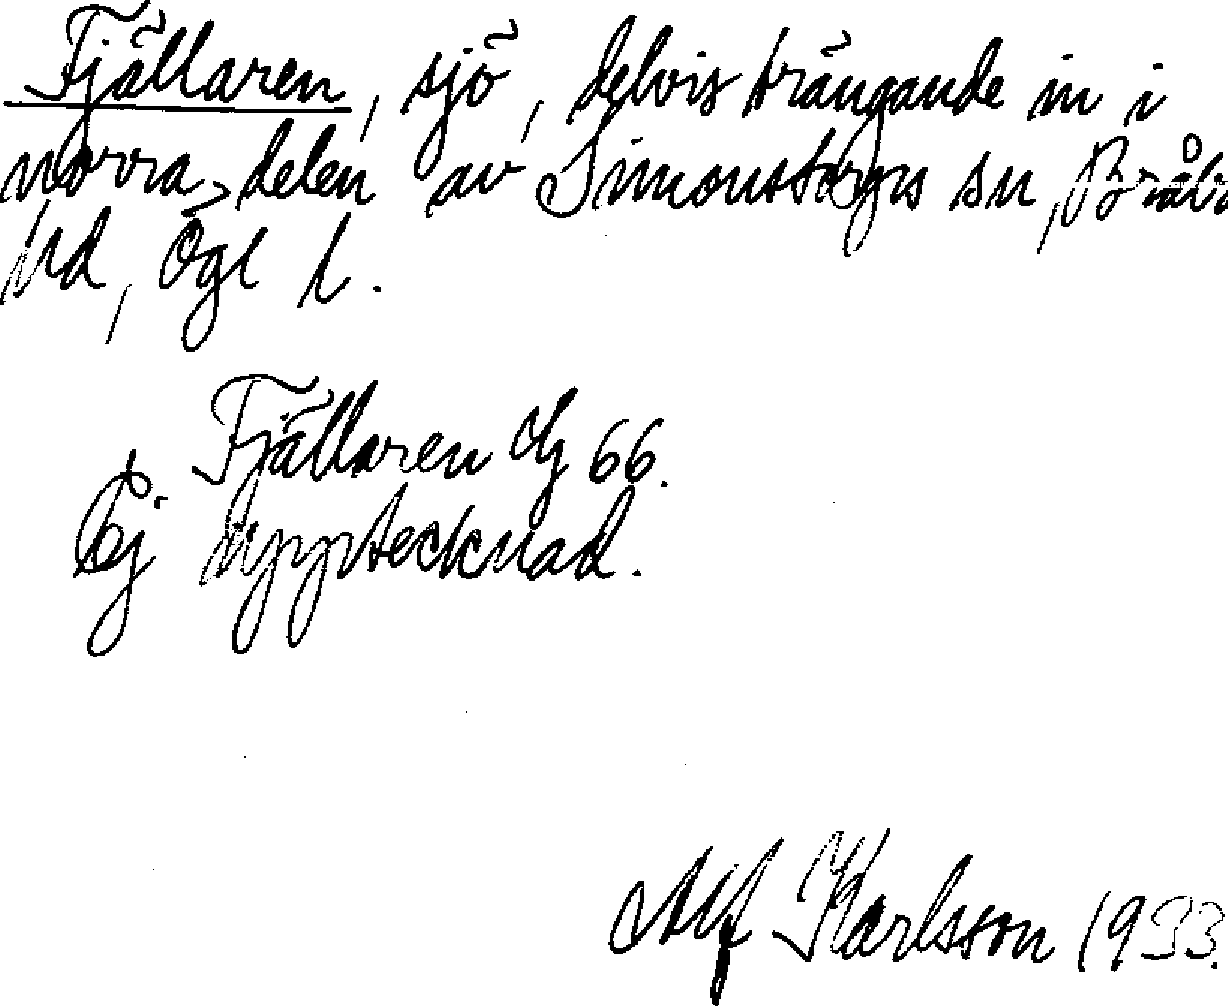 Fjällaren, sjö, delvis trängande in i
norra delen av Simonstorps sn, Bråbo
hd, Ögl l.
Fjällaren Cg 66.
Ej upptecknad.
Alf Karlsson 1933.